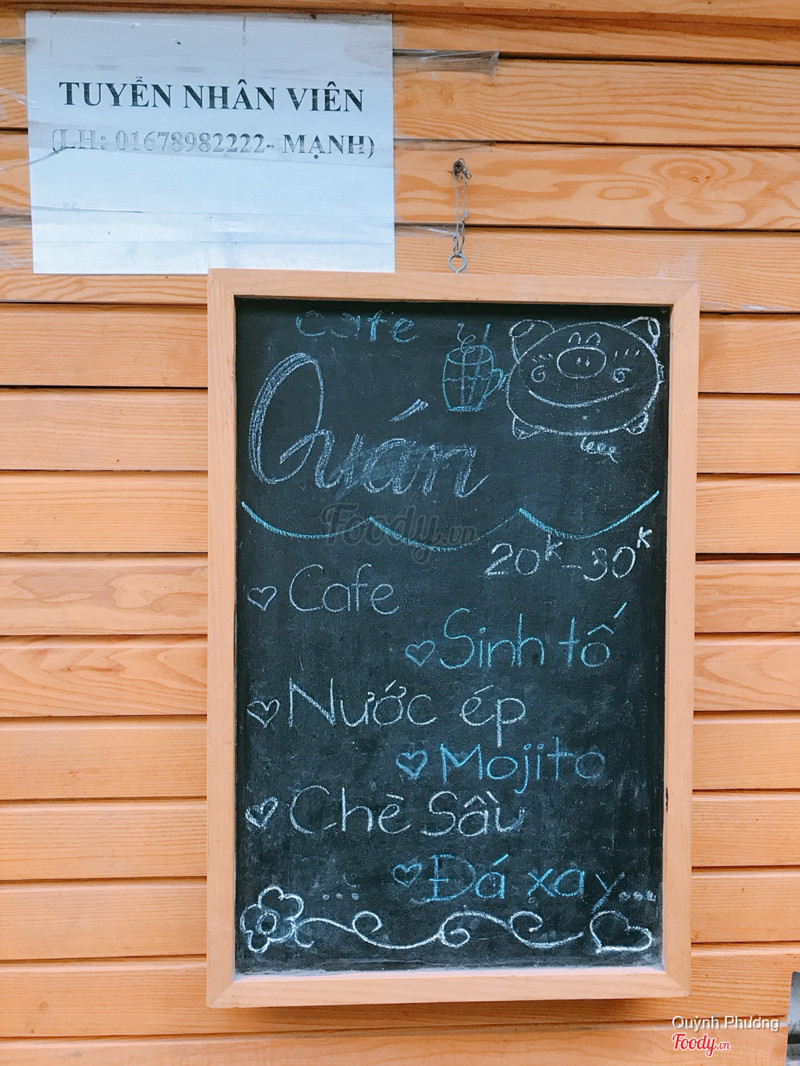 TUYỂN NHÂN VIÊN
(LH: 01678982222- MẠNH)
cafe
Quán
Foody.vn
20K-30K
Cafe
Sinh tố
Nước ép
Mojito
Chè Sầu
...
Đá xay...
Quỳnh Phương
Foody.vn